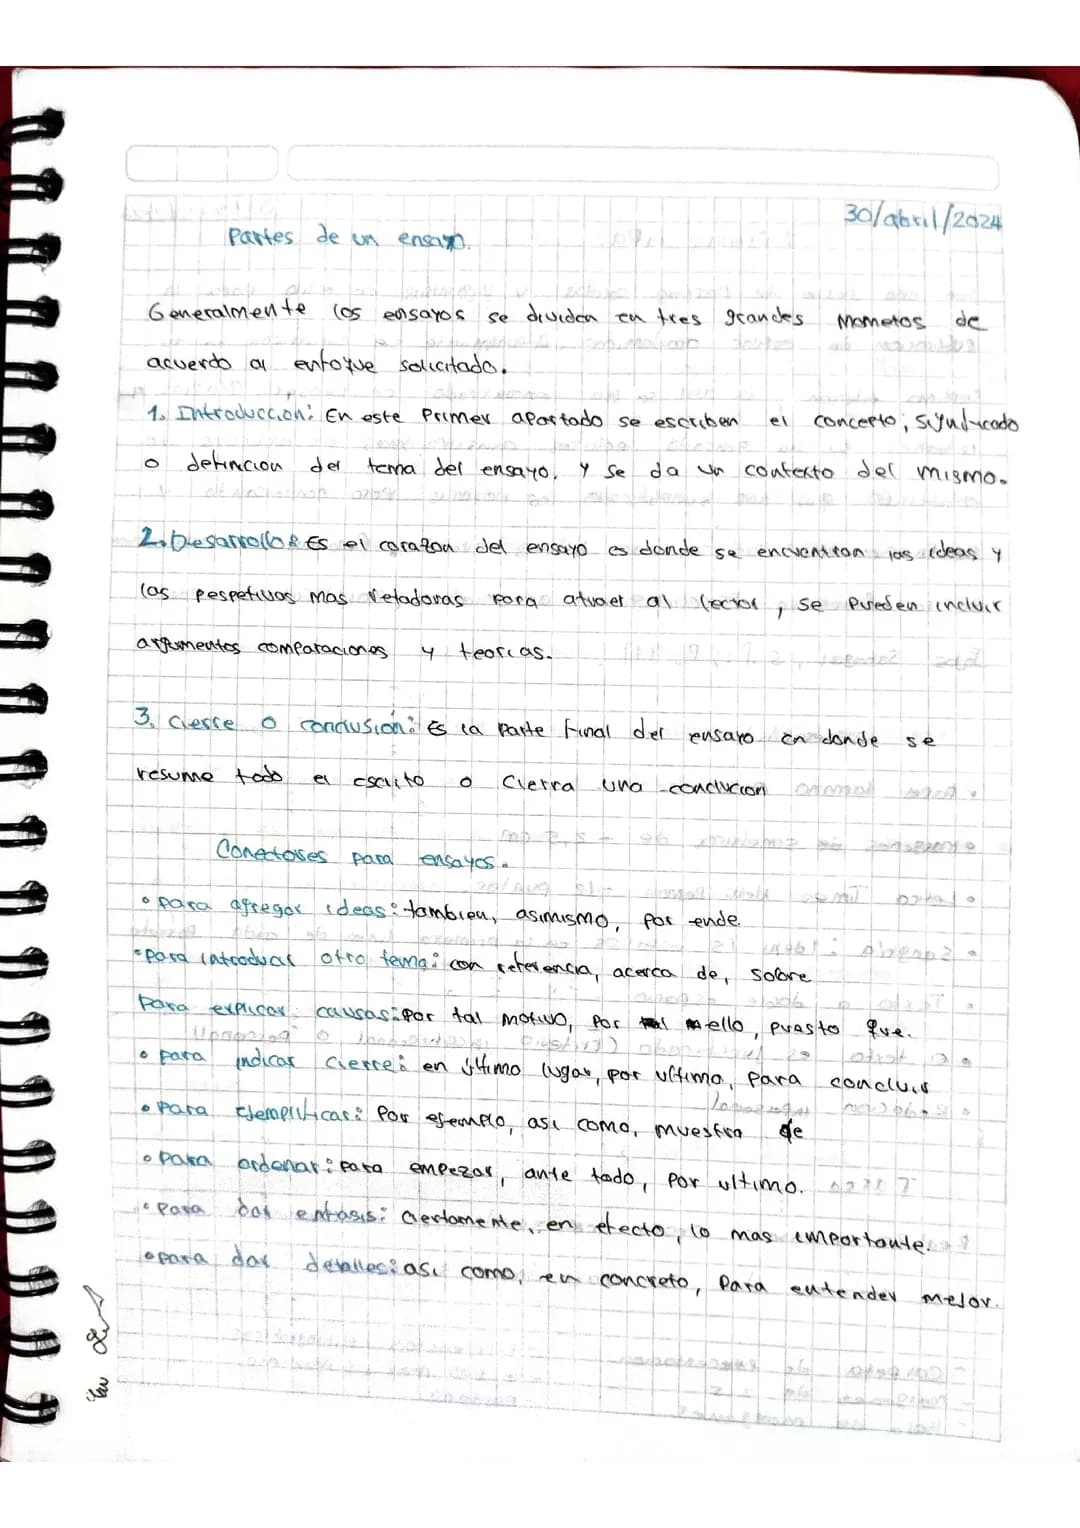 30/abril/2024
Partes de un ensayo.
Generalmente los ensayos se dividen en tres grandes Mometos de
acuerdo al enfoque solicitado.
1. Introduccion: En este Primer apartado se escriben el concepto, significado
o defincion del tema del ensayo. y se da un contexto del mismo.
2. Desarrollo: Es el corazon del ensayo es donde se encuentran las ideas y
las pespetivas mas retadoras para atraer al lector, se pueden incluir
argumentos comparaciones y teorias.
3. Cierre o conclusión: Es la parte final del ensayo en donde se
resume todo el escrito o cierra una conclucion
Conectores para ensayos.
• para agregar ideas: tambien, asimismo, por ende
• para introducir otro tema: con referencia, acerca de, sobre
Para explicar causas: por tal motivo, por ello, puesto que.
• para indicar cierre: en último lugar, por ultimo, para concluir
• para ejemplificar: Por ejemplo, asi como, muestra de
• para ordenar: para empezar, ante todo, por ultimo.
• para dar enfasis: ciertamente, en efecto, lo mas importante.
• para dar detalles: asi como, en concreto, para entender mejor.